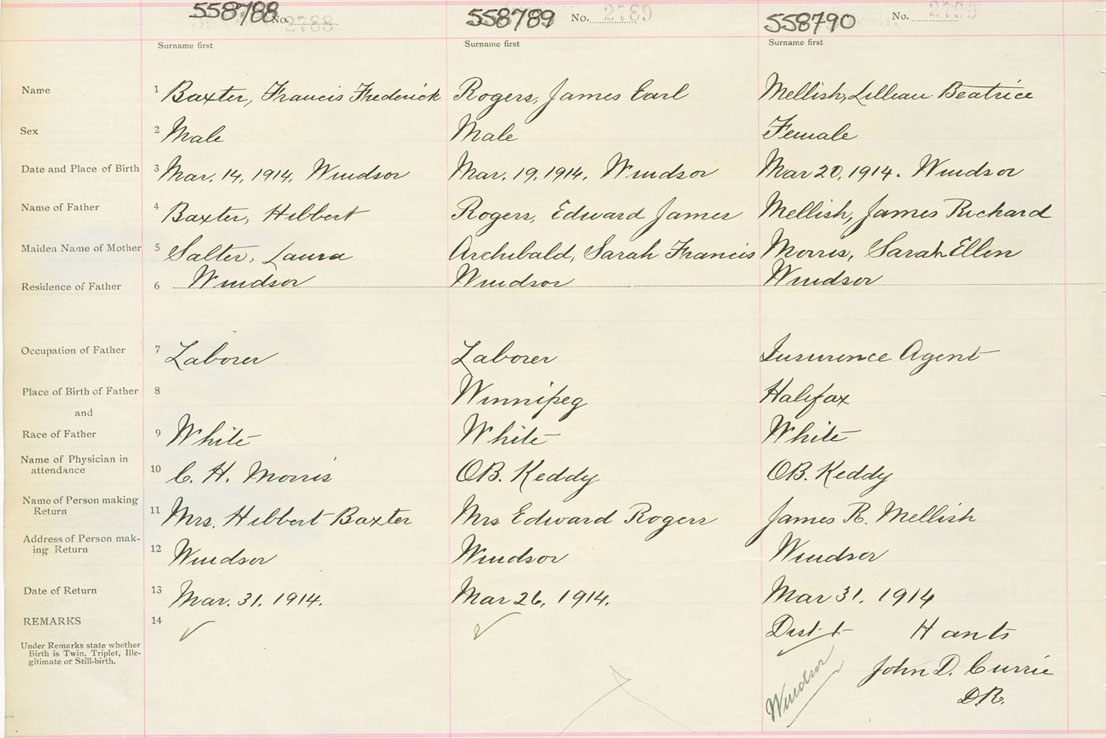 558788 No. 2788 558789 No. 2789 558790 No. 2790
Surname first Surname first Surname first
Name 1 Baxter, Francis Frederick Rogers, James Earl Mellish, Lillian Beatrice
Sex 2 Male Male Female
Date and Place of Birth 3 Mar. 14, 1914, Windsor Mar. 19, 1914, Windsor Mar 20, 1914. Windsor
Name of Father 4 Baxter, Hibbert Rogers, Edward James Mellish, James Richard
Maiden Name of Mother 5 Salter, Laura Archibald, Sarah Francis Morris, Sarah Ellen
Residence of Father 6 Windsor Windsor Windsor
Occupation of Father 7 Laborer Laborer Insurence Agent
Place of Birth of Father 8 Winnipeg Halifax
and
Race of Father 9 White White White
Name of Physician in
attendance 10 C. H. Morris OB. Keddy OB. Keddy
Name of Person making
Return 11 Mrs. Hibbert Baxter Mrs Edward Rogers James R. Mellish
Address of Person mak-
ing Return 12 Windsor Windsor Windsor
Date of Return 13 Mar. 31, 1914. Mar 26, 1914. Mar 31, 1914
REMARKS 14 ✓ ✓ Dist. 1 Hants
Under Remarks state whether
Birth is Twin, Triplet, Ille-
gitimate or Still-birth.
Windsor John D. Currie
D.R.